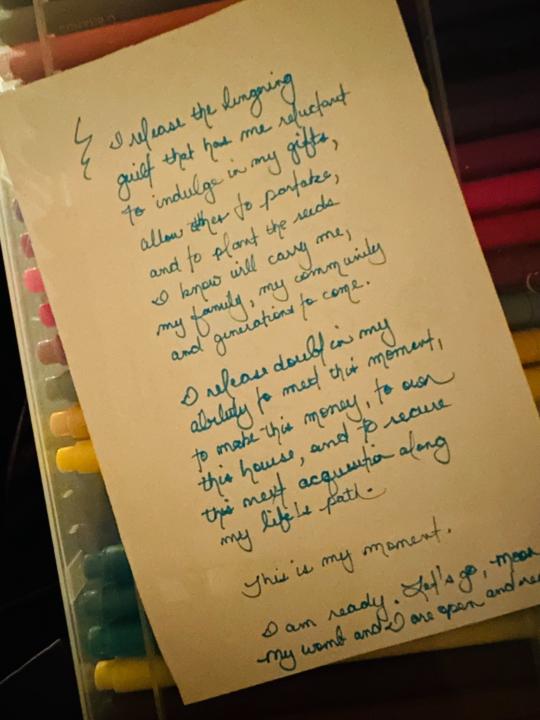 I release the lingring
guilt that has me reluctant
to indulge in my gifts,
allow other to partake,
and to plant the seeds
I know will carry me,
my family, my community
and generations to come.
I release doubt in my
ability to meet this moment,
to make this money, to own
this house, and to secure
this next acquisition along
my life's path.
This is my moment.
I am ready. Let's go, moon
My womb and I are open and